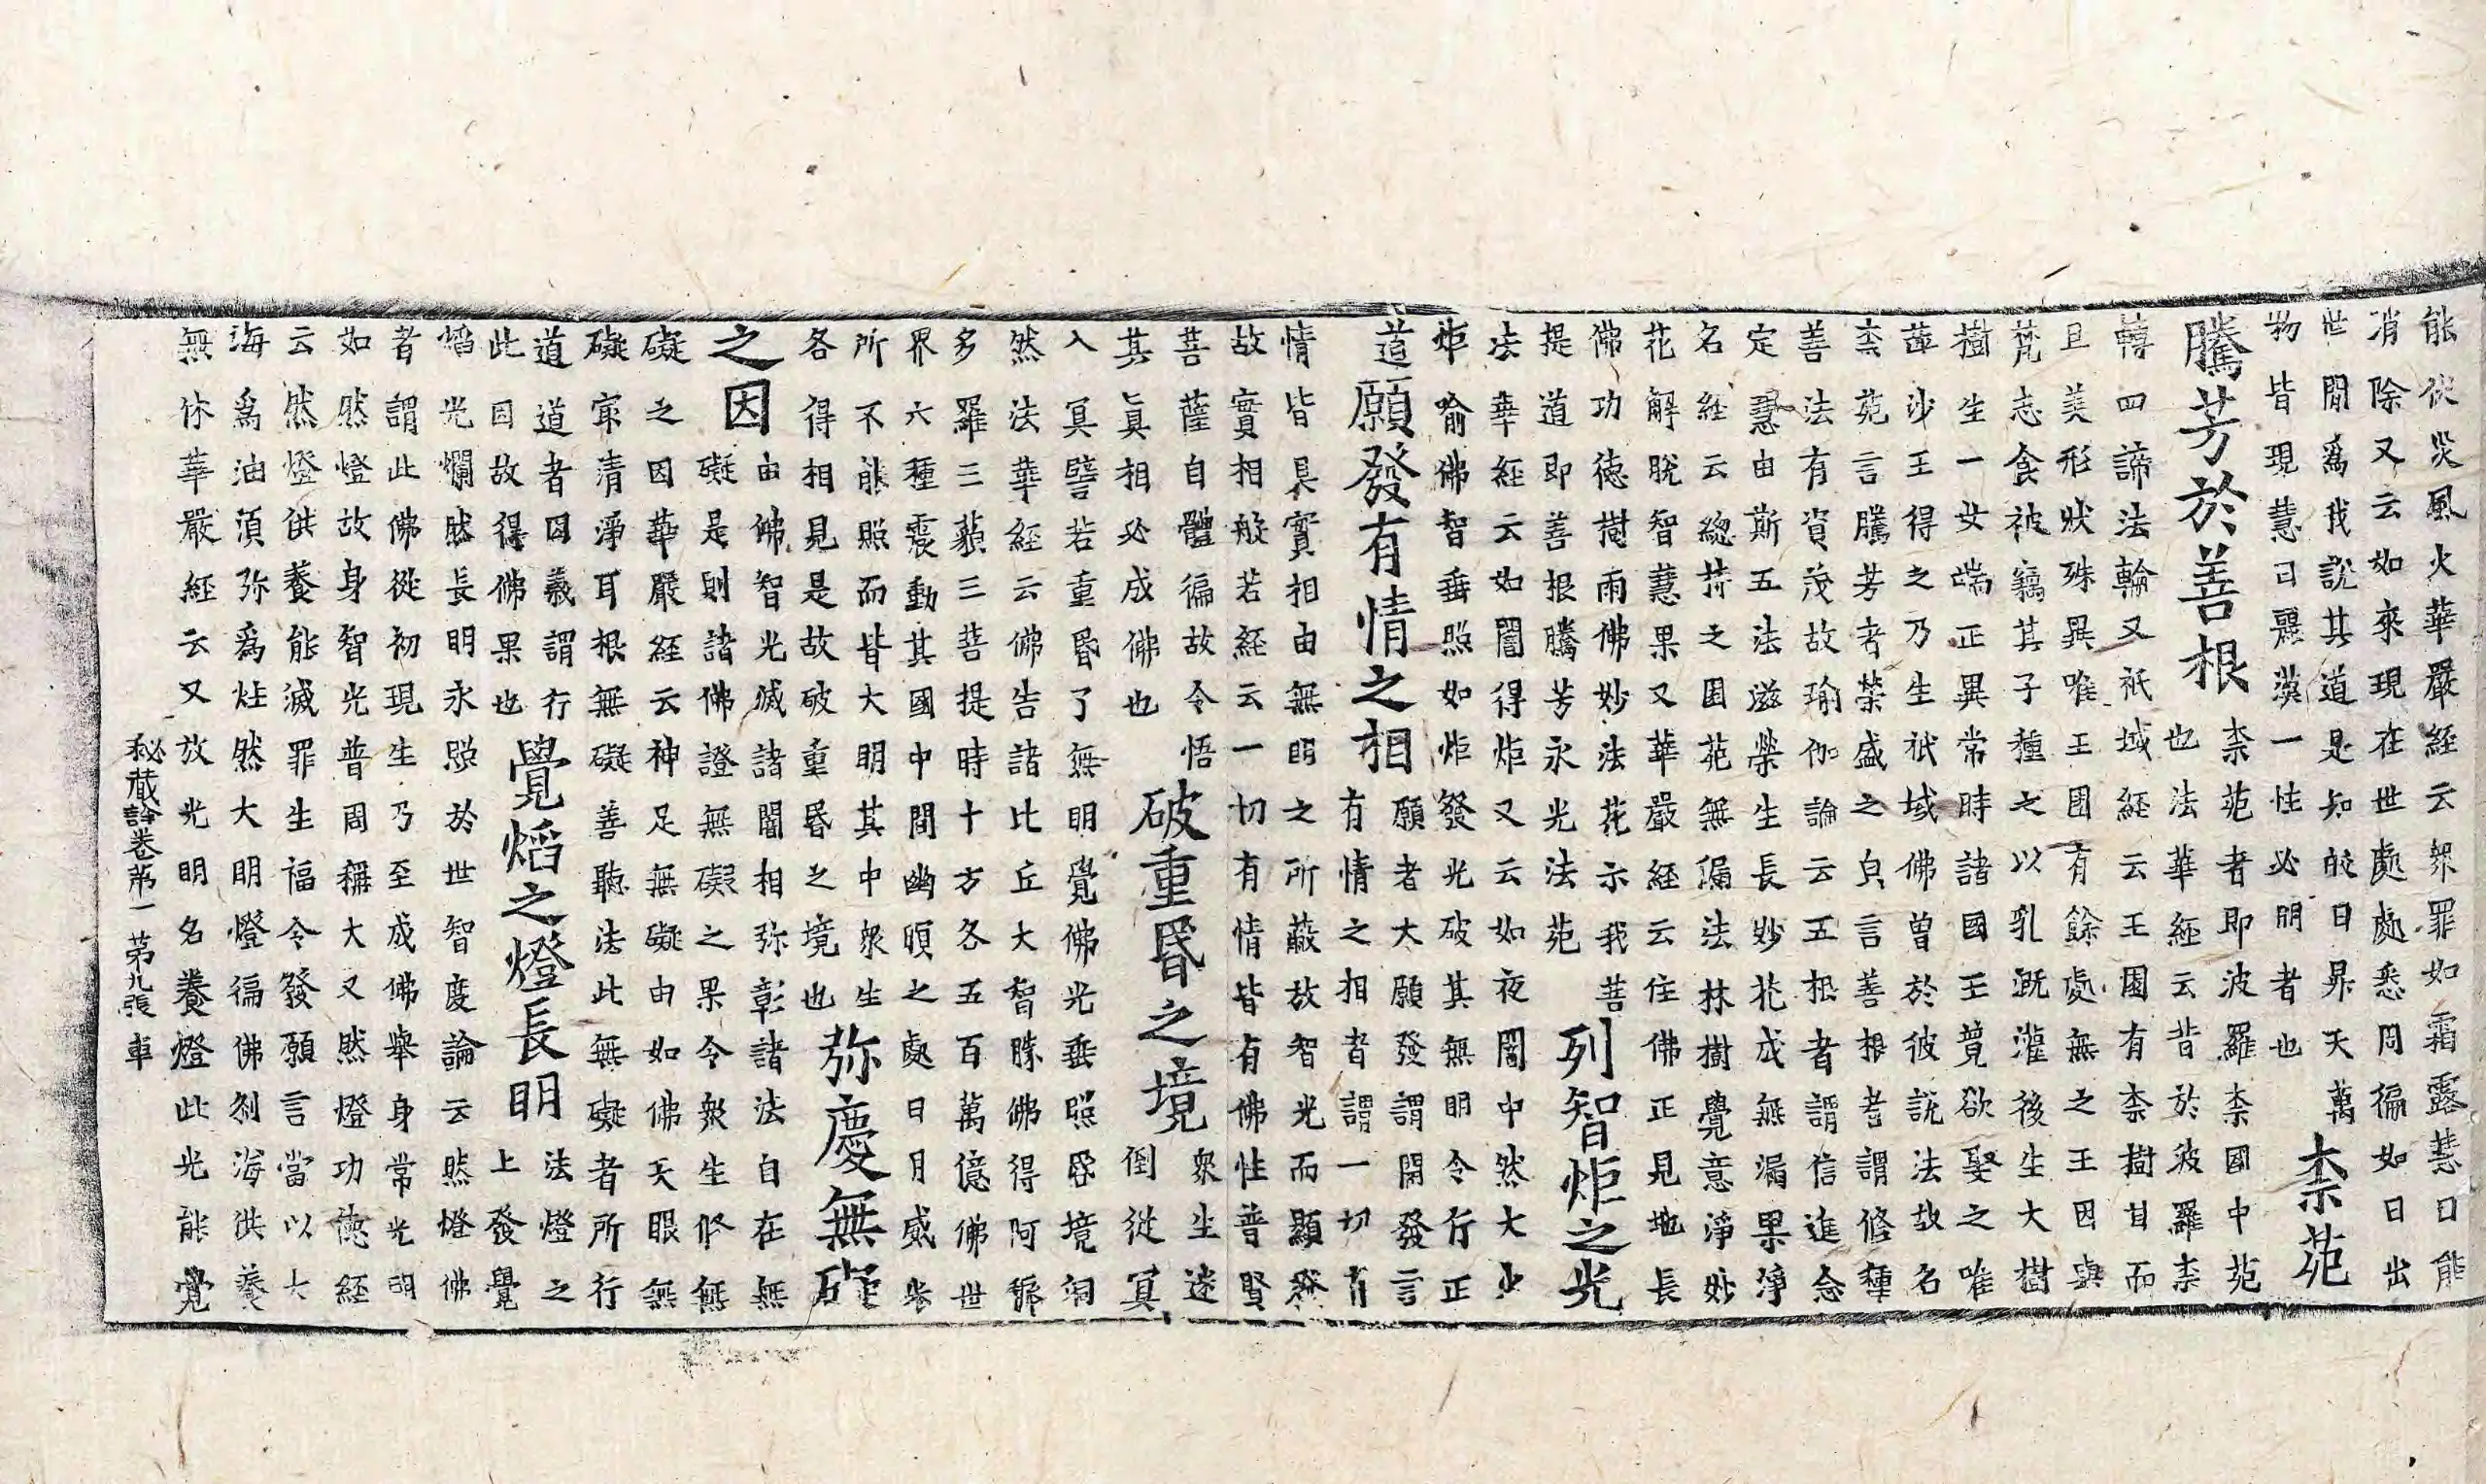 能伏災風火華嚴経云衆罪如霜露慧日能
消除又云如來現在世處處悉周徧如日出
世間爲我說其道是知皎日昇天萬
物皆現慧日麗漢一性必明者也
柰苑
騰芳於善根
柰苑者即波羅柰國中苑
也法華経云昔於波羅柰
轉四諦法輪又祇域経云王園有柰樹甘而
且美形狀殊異唯王園有餘處無之王因與
梵志食被竊其子種之以乳漑灌後生大樹
樹生一女端正異常時諸國王競欲娶之唯
蓱沙王得之乃生祇域佛曾於彼說法故名
柰苑言騰芳者榮盛之皃言善根者謂修種
善法有資茂故瑜伽論云五根者謂信進念
定慧由斯五法滋榮生長妙花成無漏果淨
名経云緫持之園苑無漏法林樹覺意淨妙
花解脫智慧果又華嚴経云住佛正見地長
佛功德樹雨佛妙法花示我菩
提道即善根騰芳永光法苑
列智炬之光
法華経云如闇得炬又云如夜闇中然大火
炬喻佛智垂照如炬發光破其無明令行正
道
願發有情之相
願者大願發謂開發言
有情之相者謂一切有
情皆具實相由無明之所蔽故智光而顯發
故實相般若経云一切有情皆有佛性普賢
菩薩自體徧故令悟
其眞相必成佛也
破重昏之境
衆生迷
倒從冥
入冥譬若重昏了無明覺佛光垂照昏境洞
然法華経云佛告諸比丘大智勝佛得阿耨
多羅三藐三菩提時十方各五百萬億佛世
界六種震動其國中間幽暝之處日月威光
所不能照而皆大明其中衆生
各得相見是故破重昏之境也
弥慶無礙
之因
由佛智光滅諸闇相弥彰諸法自在無
礙是則諸佛證無礙之果令衆生修無
礙之因華嚴経云神足無礙由如佛天眼無
礙寂清淨耳根無礙善聽法此無礙者所行
道道者因義謂行
此因故得佛果也
覺熖之燈長明
法燈之
上發覺
熖光爛然長明永照於世智度論云然燈佛
者謂此佛從初現生乃至成佛舉身常光明
如然燈故身智光普周稱大又然燈功德経
云然燈供養能滅罪生福令發願言當以大
海爲油須弥爲炷然大明燈徧佛刹海供養
無休華嚴経云又放光明名養燈此光能覺
秘藏論卷第一 第九張 車